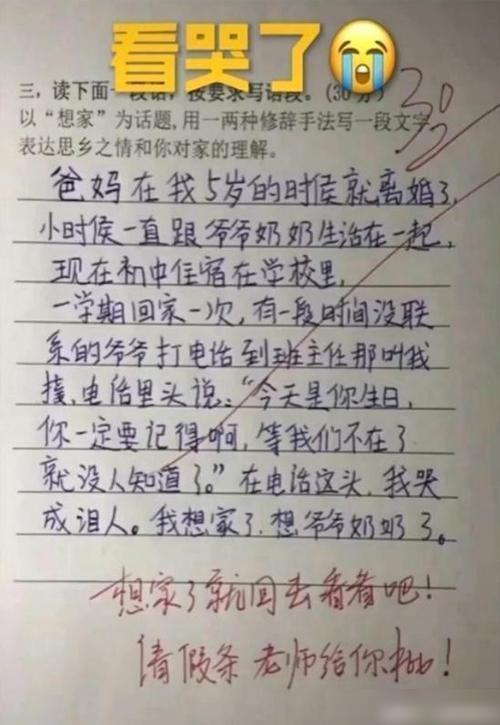 看哭了
三、读下面一段话，按要求写话段。(30分)
30
以“想家”为话题，用一两种修辞手法写一段文字，
表达思乡之情和你对家的理解。
爸妈在我5岁的时侯就离婚了，
小时侯一直跟爷爷奶奶生活在一起，
现在初中住宿在学校里，
一学期回家一次，有一段时间没联
系的爷爷打电话到班主任那叫我
接，电话里头说：“今天是你生日，
你一定要记得啊，等我们不在了
就没人知道了。”在电话这头，我哭
成泪人。我想家了，想爷爷奶奶了。
想家了就回去看看吧！
请假条老师给你批！